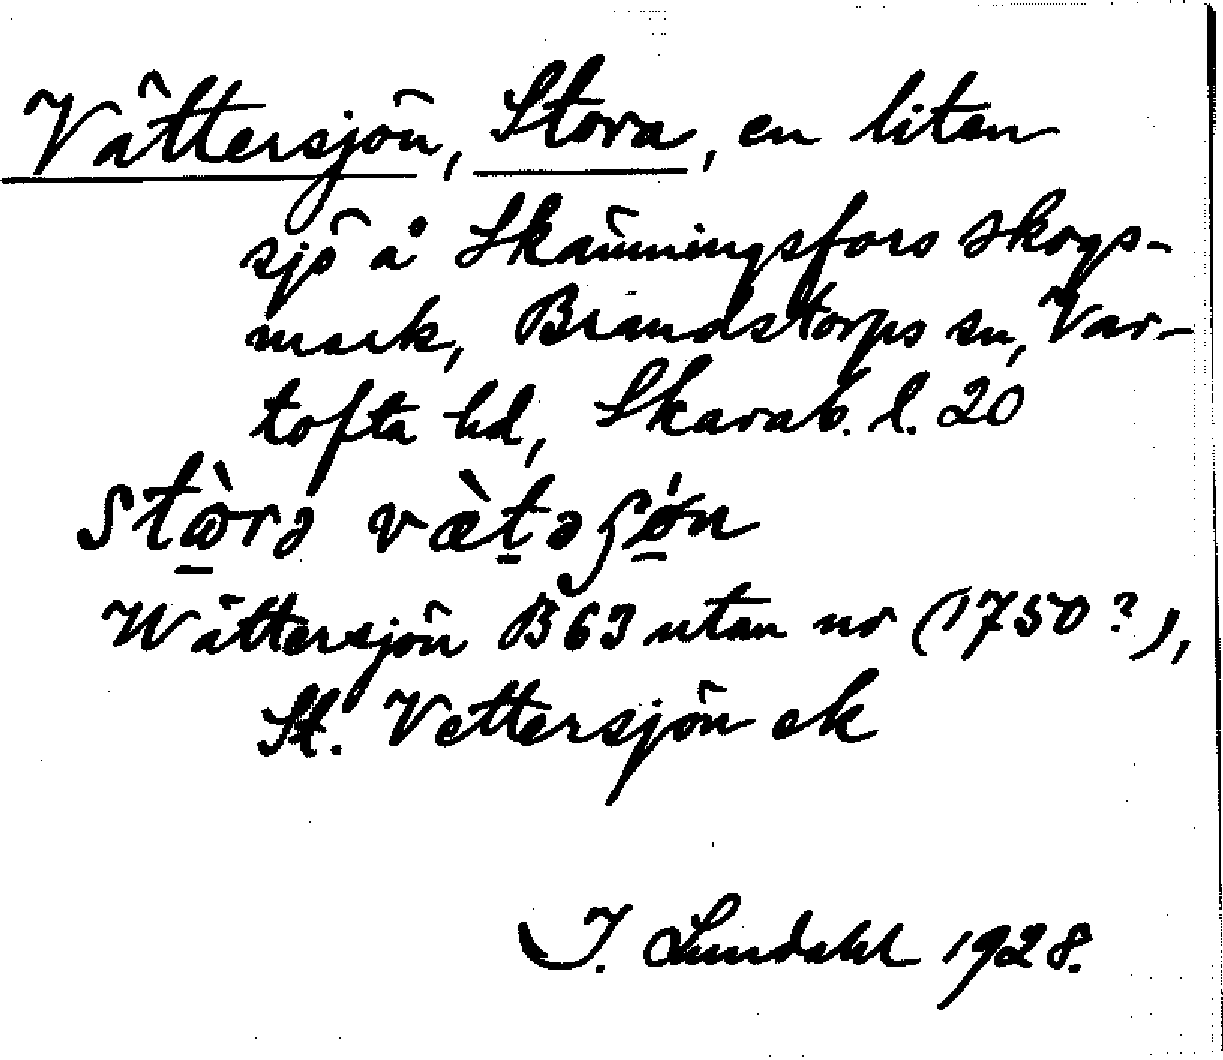 Vättersjön, Stora, en liten
sjö å Skämningsfors skogs-
mark, Brandstorps sn, Var-
tofta hd, Skarab. l. 20
Wättersjön B63 utan nr (1750?),
St. Vettersjön ek
J. Lundahl 1928.